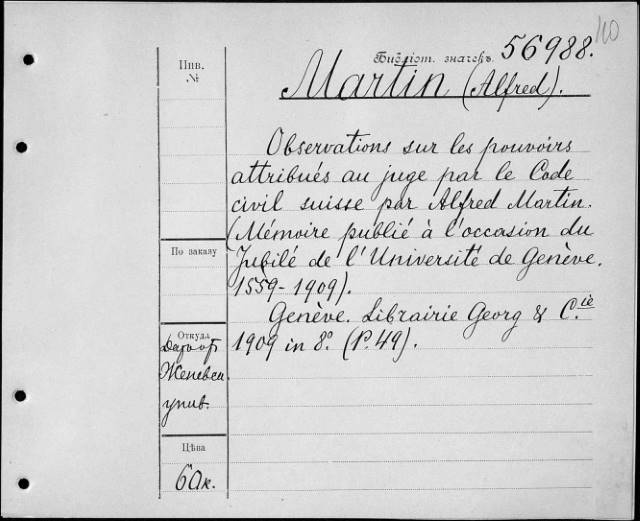 110
Библіот. значекъ 56988.
Инв.
№
Martin (Alfred).
Observations sur les pouvoirs
attribués au juge par le Code
civil suisse par Alfred Martin.
(Mémoire publié à l'occasion du
Jubilé de l'Université de Genève.
1559-1909).
Genève. Librairie Georg & C.ie
1909 in 8º. (P. 49).
По заказу
Откуда
Женевск.
унив.
Цѣна